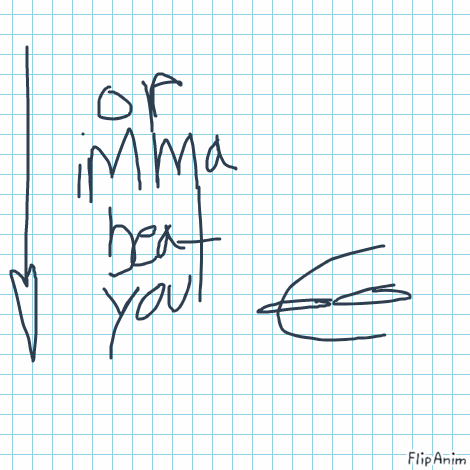 or
imma
beat
you
FlipAnim